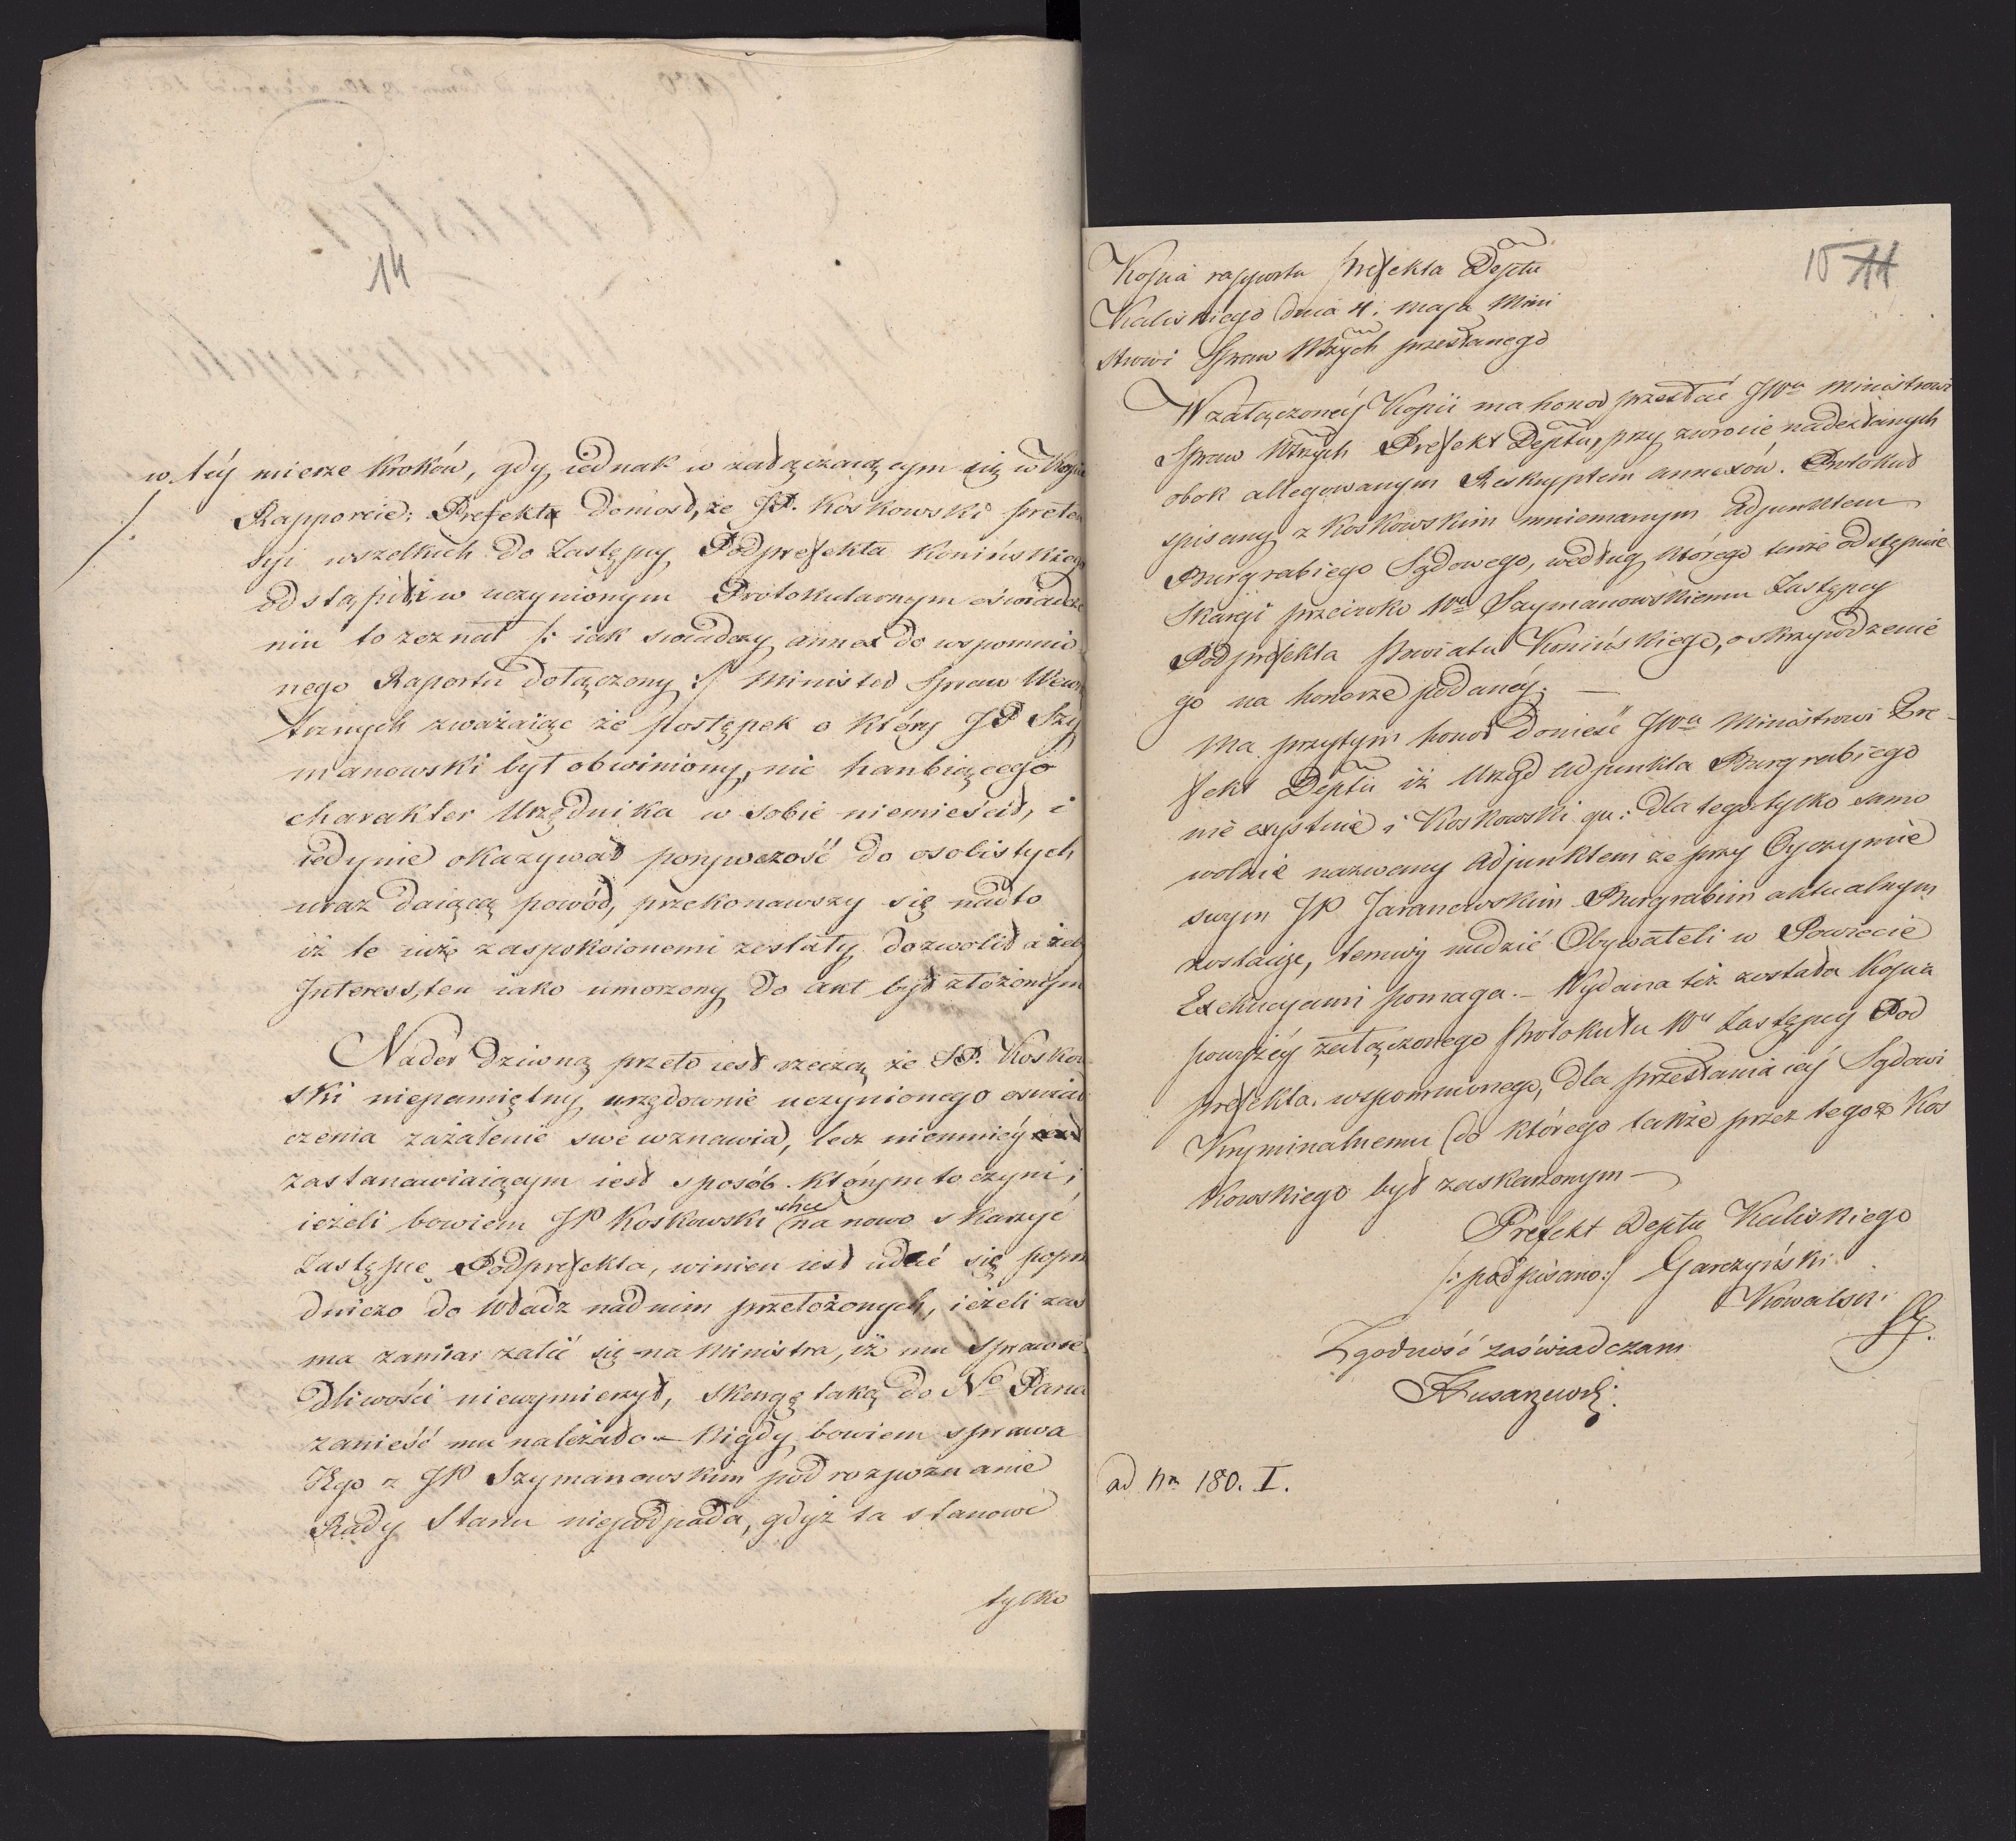 14
w téy mierze kroków, gdy iednak w załączaiącym się w Kopii
/. Rapporcie: Prefekta doniosł, że JP. Koskowski preten
syi wszelkich do Zastępcy Podprefekta Konińskiego
odstąpił i w uczynionym Protokularnym oświadcze
niu to zeznał /: iak swiadczy annex do wspomnio
nego Raportu dołączony :/ Minister Spraw Wewn
trznych zważaiąc że postępek o który JP Szy
manowski był obwiniony, nic hanbiącego
charakter Urzędnika w sobie niemieścił, i
iedynie okazywał porywczość do osobistych
uraz daiącą powód, przekonawszy się nadto
iż te iuż zaspokoionemi zostały dozwolił ażeby
Interess, ten iako umorzony do akt był złożonym
Nader dziwną przeto iest rzeczą że JP. Koskow
ski niepamiętny urzędownie uczynionego oswiad
czenia zażalenie swe wznawia, lecz niemniéy
zastanawiaiącym iest sposób którym to czyni;
ieżeli bowiem JP Koskowski chce na nowo skarzyć
Zastępcę Podprefekta, winien iest udać się poprz
dniczo do Władz nad nim przełożonych, ieżeli zas
ma zamiar żalić się na Ministra, iż mu sprawie
dliwości niewymierzył, skargę taką do No Pana
zanieść mu należało – Nigdy bowiem sprawa
Jego z JP Szymanowskim pod rozpoznanie
Rady Stanu niepodpada, gdyż ta stanowi
tylko
15 11
Kopia rapportu Prefekta Deptu
Kaliskiego dnia 4. Maja Mini
strowi Spraw Wtrzych przesłanego
W załączonéy Kopii ma honor przesłać JWu Ministrowi
Spraw Wtrzych Prefekt Deptu, przy zwrocie nadesłanych
obok allegowanym Reskryptem annexów. Protokuł
spisany z Koskowskim mniemanym Adjunktem
Burgrabiego Sądowego, według którego tenże odstępuie
Skargi przeciwko Wu Szymanowskiemu Zastępcy
Podprefekta Powiatu Konińskiego, o skrzywdzenie
go na honorze podanéy. –
Ma przytym honor donieść JWu Ministrowi Pre-
fekt Deptu iż Urząd Adjunkta Burgrabiego
nie exystuie i Koskowski qu: dla tego tylko samo
wolnie nazwany Adjunktem że przy Oyczymie
swym JP Jaranowskim Burgrabim aktualnym
zostaiąc, temuż nudzić Obywateli w Powiecie
Exekucyami pomaga. – Wydana też została Kopia
powyżéy załączonego Protokułu Wu Zastępcy Pod
prefekta wspomnionego, dla przesłania iéy Sądowi
Kryminalnemu (do którego także przez tegoż Kos
kowskiego był zaskarżonym –
Prefekt Deptu Kaliskiego
/: podpisano :/ Garczyński
Kowalski
SG.
Zgodność zaświadczam
ad Nm 180. I.